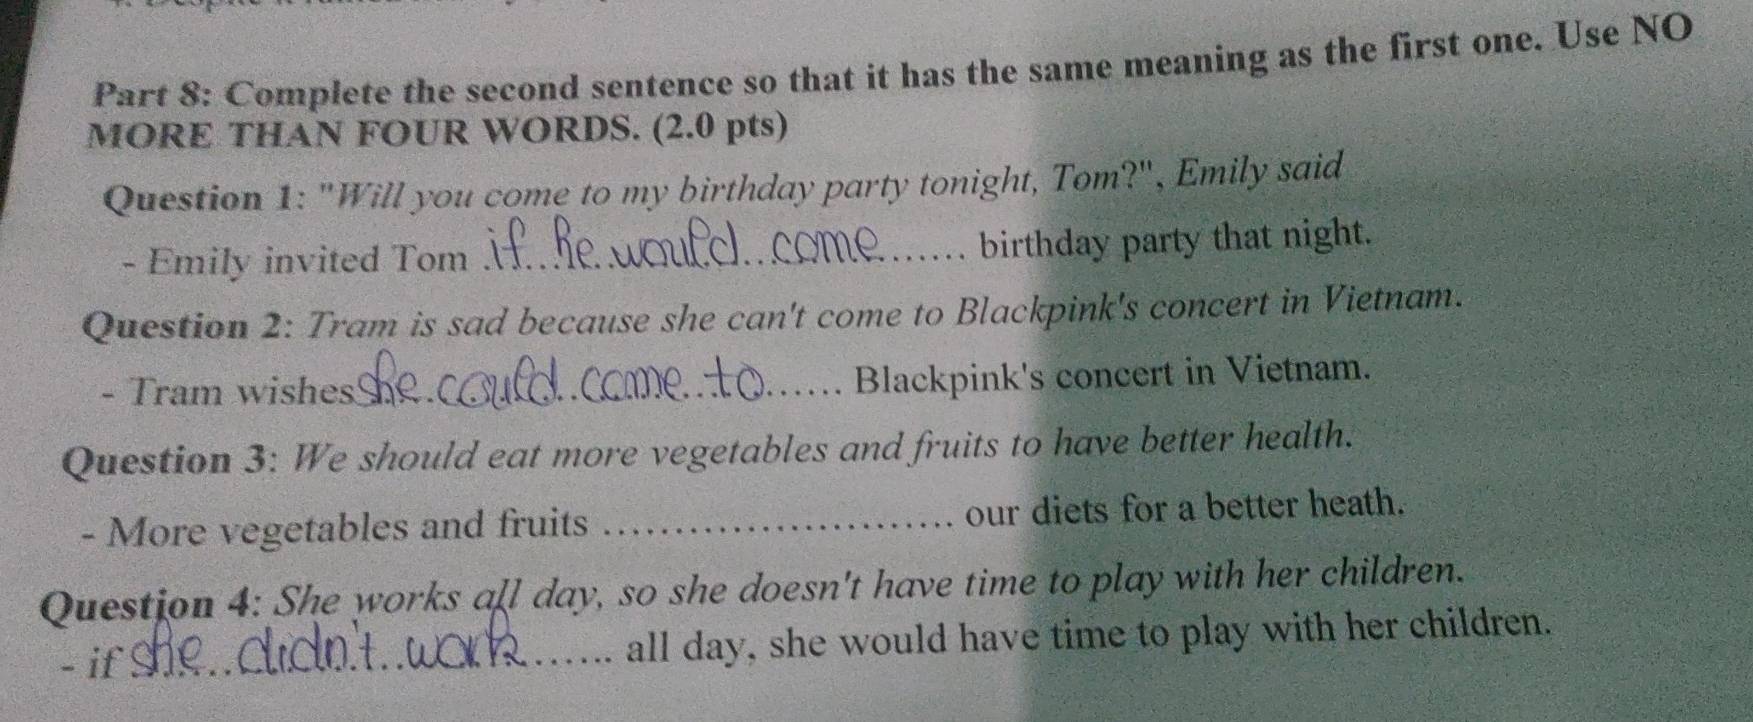 Part 8: Complete the second sentence so that it has the same meaning as the first one. Use NO
MORE THAN FOUR WORDS. (2.0 pts)
Question 1: "Will you come to my birthday party tonight, Tom?", Emily said
- Emily invited Tom .if...he..would..come....... birthday party that night.
Question 2: Tram is sad because she can't come to Blackpink's concert in Vietnam.
- Tram wishes she.could..come..to...... Blackpink's concert in Vietnam.
Question 3: We should eat more vegetables and fruits to have better health.
- More vegetables and fruits ......................... our diets for a better heath.
Question 4: She works all day, so she doesn't have time to play with her children.
- if she..didn't..work...... all day, she would have time to play with her children.